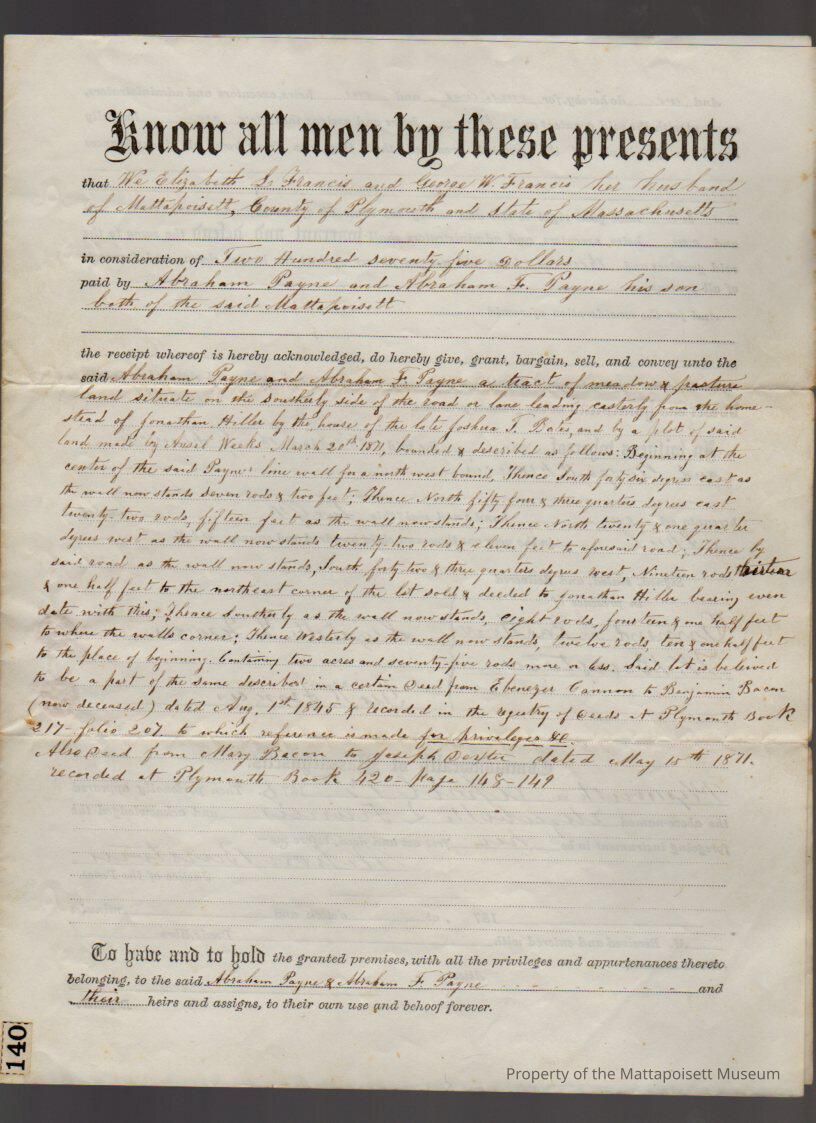 Know all men by these presents
that We Elizabeth S. Francis and George W. Francis her husband
of Mattapoisett, County of Plymouth and State of Massachusetts
in consideration of Two Hundred seventy-five Dollars
paid by Abraham Payne and Abraham F. Payne his son
both of the said Mattapoisett
the receipt whereof is hereby acknowledged, do hereby give, grant, bargain, sell, and convey unto the
said Abraham Payne and Abraham F. Payne a tract of meadow & pasture
land situate on the southerly side of the road or lane leading easterly from the home-
stead of Jonathan Hiller by the house of the late Joshua T. Bates, and by a plot of said
land made by Ansel Weeks March 20th 1871, bounded & described as follows: Beginning at the
center of the said Payne's line wall for a north west bound, Thence South forty six degrees east as
the wall now stands seven rods & two feet; Thence North fifty four & three quarters degrees east
twenty-two rods, fifteen feet as the wall now stands; Thence North twenty & one quarter
degrees west as the wall now stands twenty-two rods & eleven feet to aforesaid road; Thence by
said road as the wall now stands, South forty two & three quarters degrees west, Nineteen rods thirteen
& one half feet to the northeast corner of the lot sold & deeded to Jonathan Hiller bearing even
date with this; Thence Southerly as the wall now stands, eight rods, fourteen & one half feet
to where the walls corner; Thence Westerly as the wall now stands, twelve rods, ten & one half feet
to the place of beginning. Containing two acres and seventy-five rods more or less. Said lot is believed
to be a part of the same described in a certain Deed from Ebenezer Cannon to Benjamin Bacon
(now deceased) dated Aug. 1st 1845 & recorded in the registry of Deeds at Plymouth Book
217-folio 207. to which reference is made for privileges &c.
Also Deed from Mary Bacon to Joseph Dexter dated May 15th 1871.
recorded at Plymouth Book 420- Page 148-149
To have and to hold the granted premises, with all the privileges and appurtenances thereto
belonging, to the said Abraham Payne & Abraham F. Payne and
their heirs and assigns, to their own use and behoof forever.
140
Property of the Mattapoisett Museum